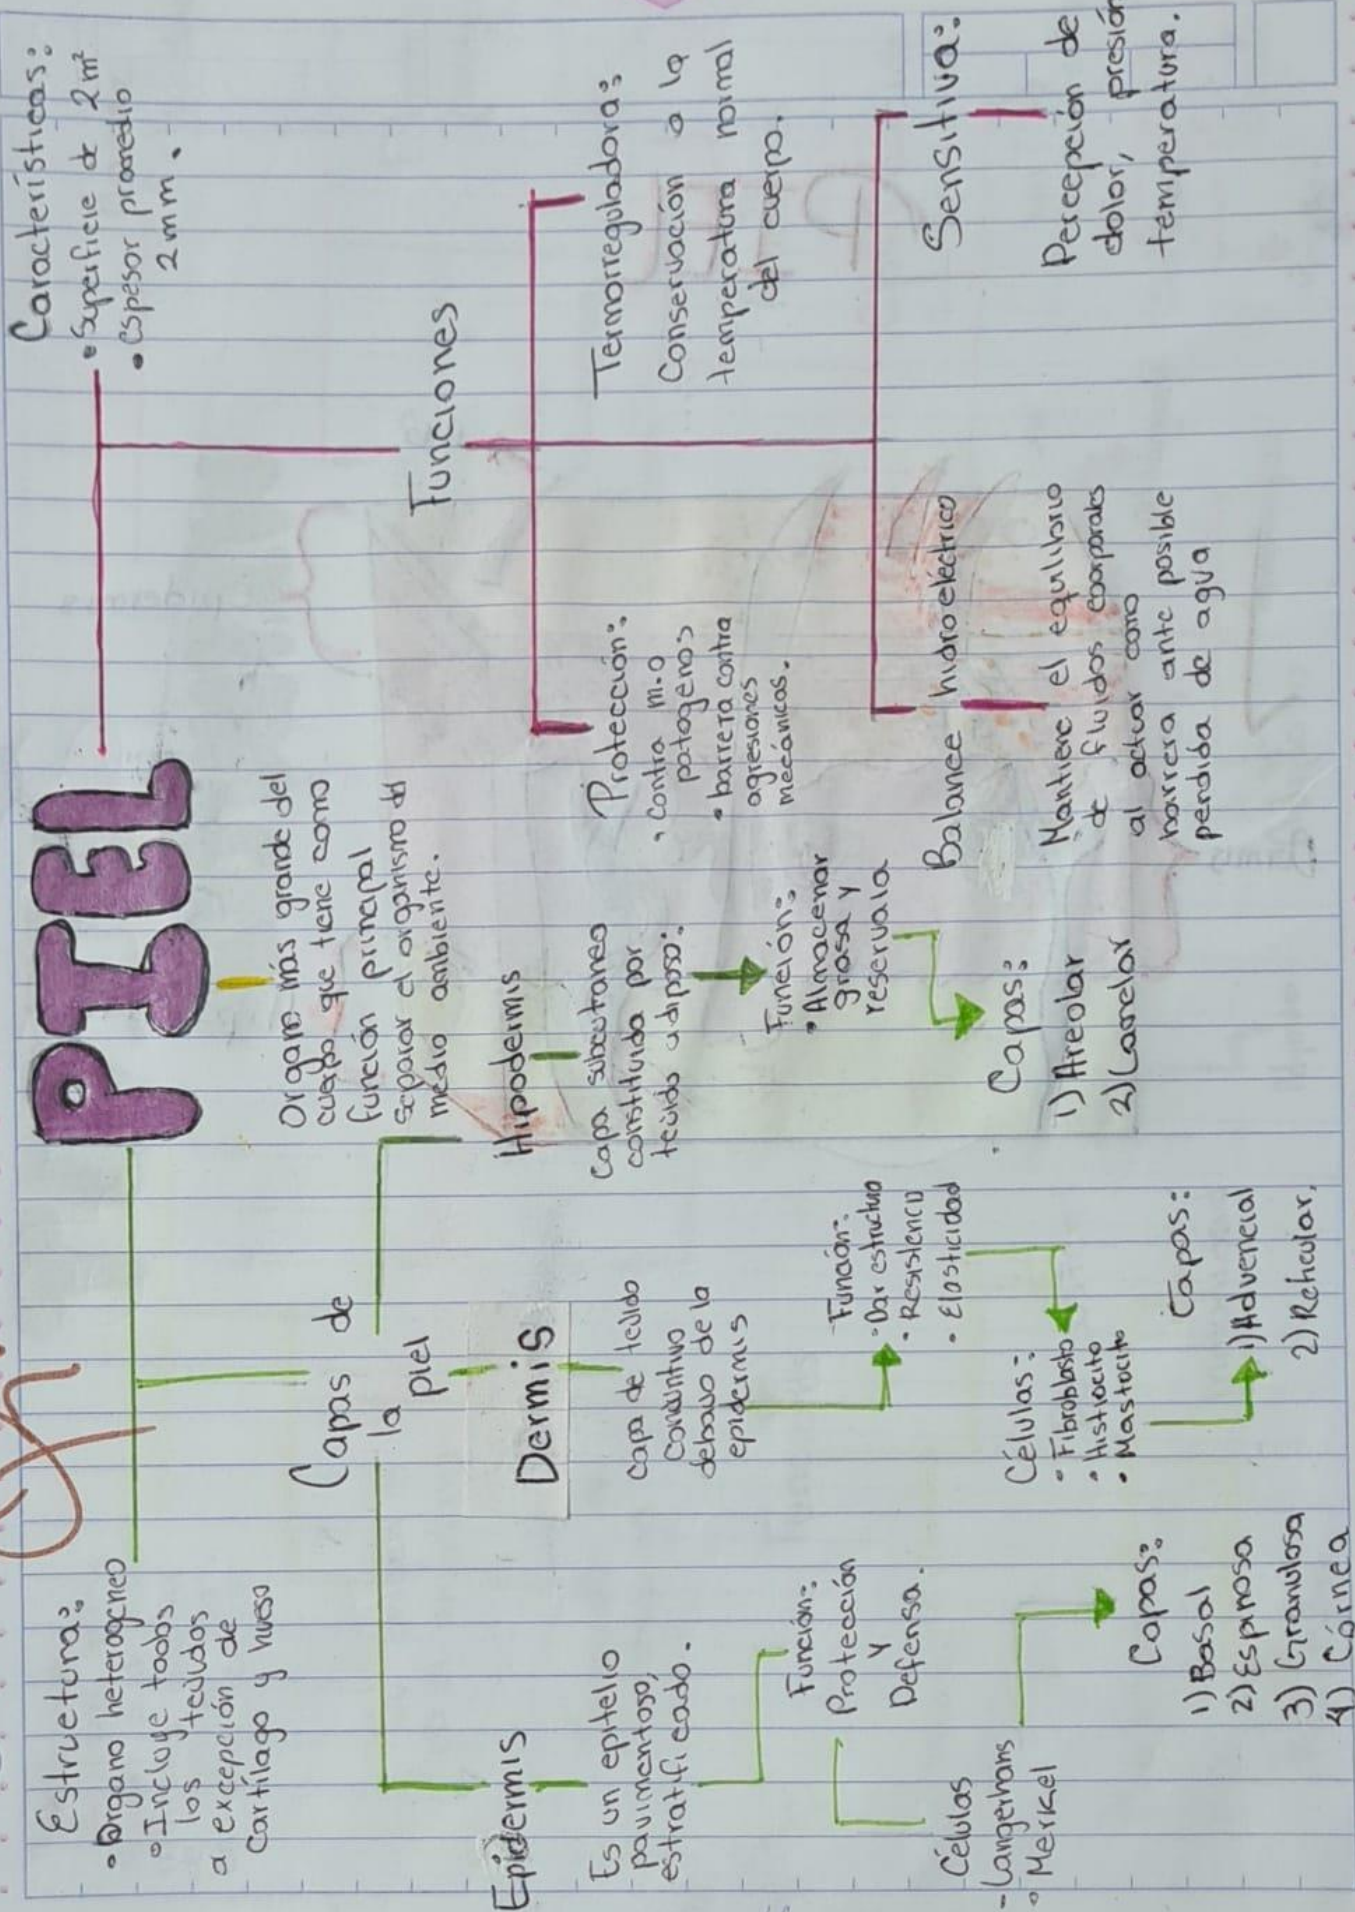 PIEL
Organo más grande del
cuerpo que tiene como
función principal
separar el organismo del
medio ambiente.
Estructura:
• Organo heterogeneo
• Incluye todos
los tejidos
a excepción de
cartílago y hueso
Capas de
la
piel
Epidermis
Es un epitelio
pavimentoso,
estratificado.
Función:
Protección
y
Defensa.
Células
- Langerhans
• Merkel
Capas:
1) Basal
2) Espinosa
3) Granulosa
4) Córnea
Dermis
Capa de tejido
conjuntivo
debajo de la
epidermis
Función:
• Dar estructura
• Resistencia
• Elasticidad
Células:
• Fibroblasto
• Histiocito
• Mastocito
Capas:
1) Advencial
2) Reticular.
Hipodermis
Capa subcutaneo
constituida por
tejido adiposo:
Función:
• Almacenar
grasa y
reservala
Capas:
1) Areolar
2) Lamelar
Características:
• Superficie de 2m²
• espesor promedio
2mm.
Funciones
Protección:
• Contra m.o
patogenos
• barrera contra
agresiones
mecánicas.
Termorreguladora:
Conservación a la
temperatura normal
del cuerpo.
Balance hidroeléctrico
Mantiene el equilibrio
de fluidos corporales
al actuar como
barrera ante posible
perdida de agua
Sensitiva:
Percepción de
dolor, presión
temperatura.